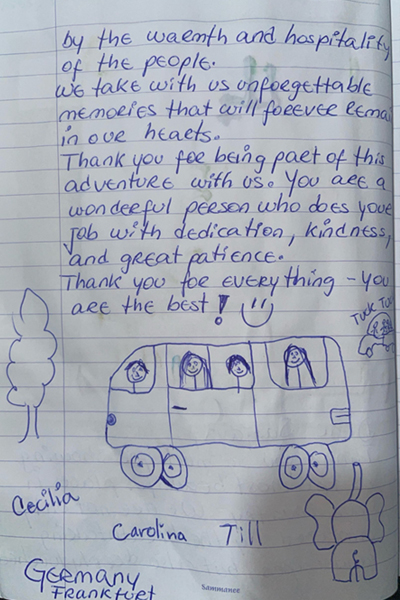 by the warmth and hospitality
of the people.
we take with us unforgettable
memories that will forever remai
in our hearts.
Thank you for being part of this
adventure with us. You are a
wonderful person who does your
job with dedication, kindness,
and great patience.
Thank you for everything - you
are the best!
Tuck Tuc
Cecilia
Carolina Till
Germany
Frankfurt
Sammanee